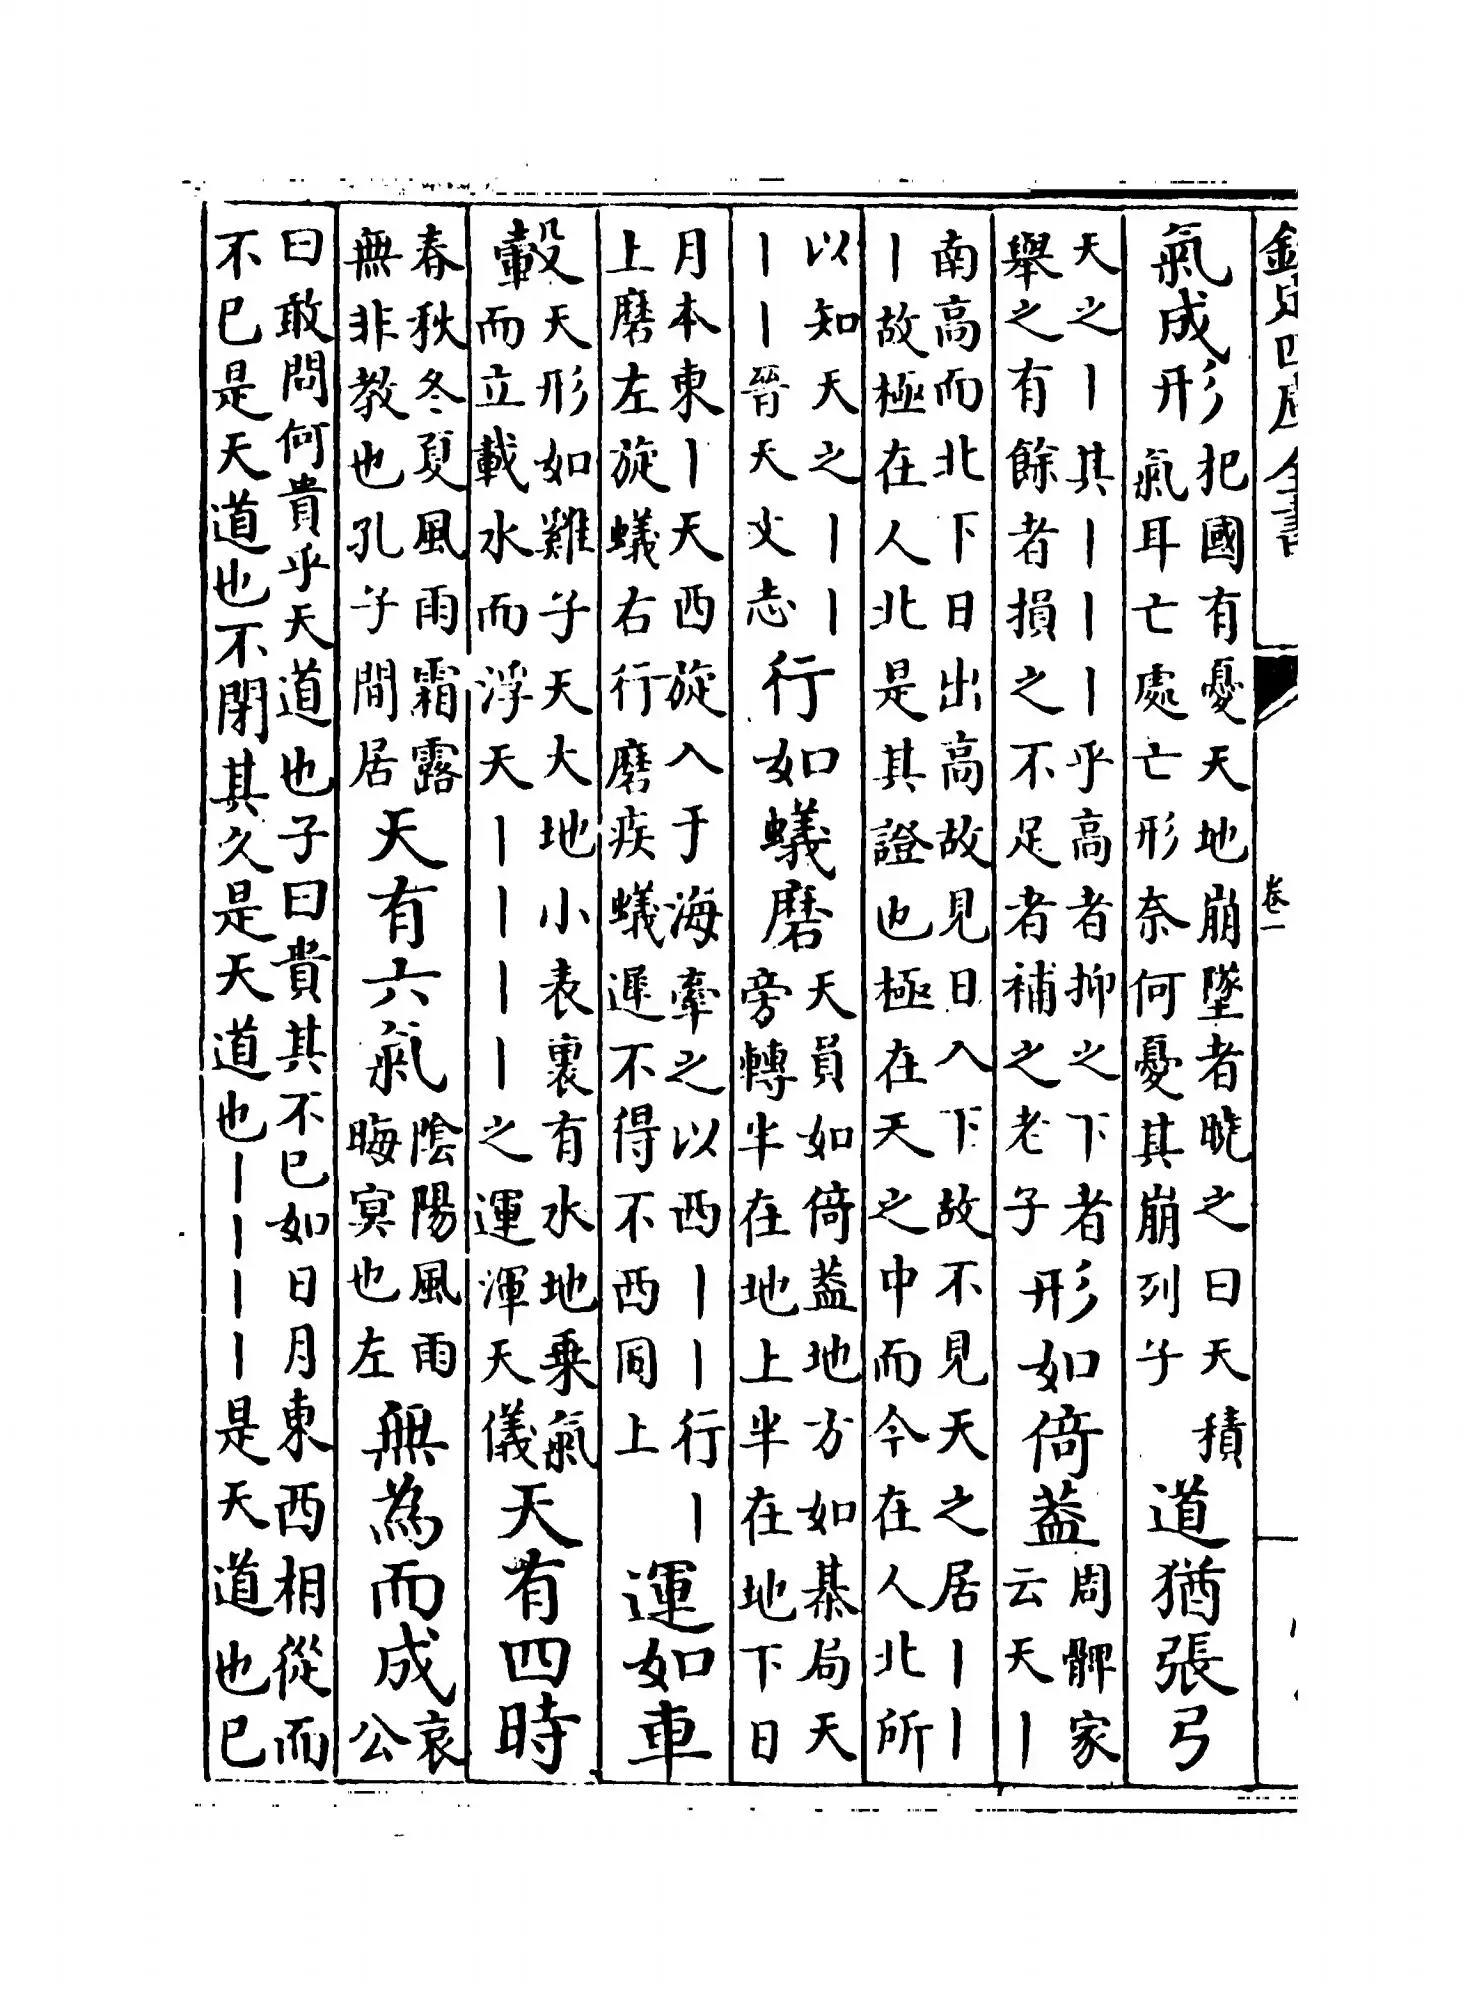 欽定四庫全書 卷一
氣成形杞國有憂天地崩墜者曉之曰天積氣耳亡處亡形奈何憂其崩列子道猶張弓
天之丨其丨丨丨乎高者抑之下者舉之有餘者損之不足者補之老子形如倚蓋周髀家云天丨
南高而北下日出高故見日入下故不見天之居丨丨丨故極在人北是其證也極在天之中而今在人北所
以知天之丨丨丨丨晉天文志行如蟻磨天員如倚蓋地方如棊局天旁轉半在地上半在地下日
月本東丨天西旋入于海牽之以西丨丨行丨上磨左旋蟻右行磨疾蟻遲不得不西同上運如車
轂天形如雞子天大地小表裏有水地乘氣而立載水而浮天丨丨丨丨之運渾天儀天有四時
春秋冬夏風雨霜露無非教也孔子間居天有六氣陰陽風雨晦冥也左無為而成哀公
曰敢問何貴乎天道也子曰貴其不已如日月東西相從而不已是天道也不閉其久是天道也丨丨丨丨是天道也已